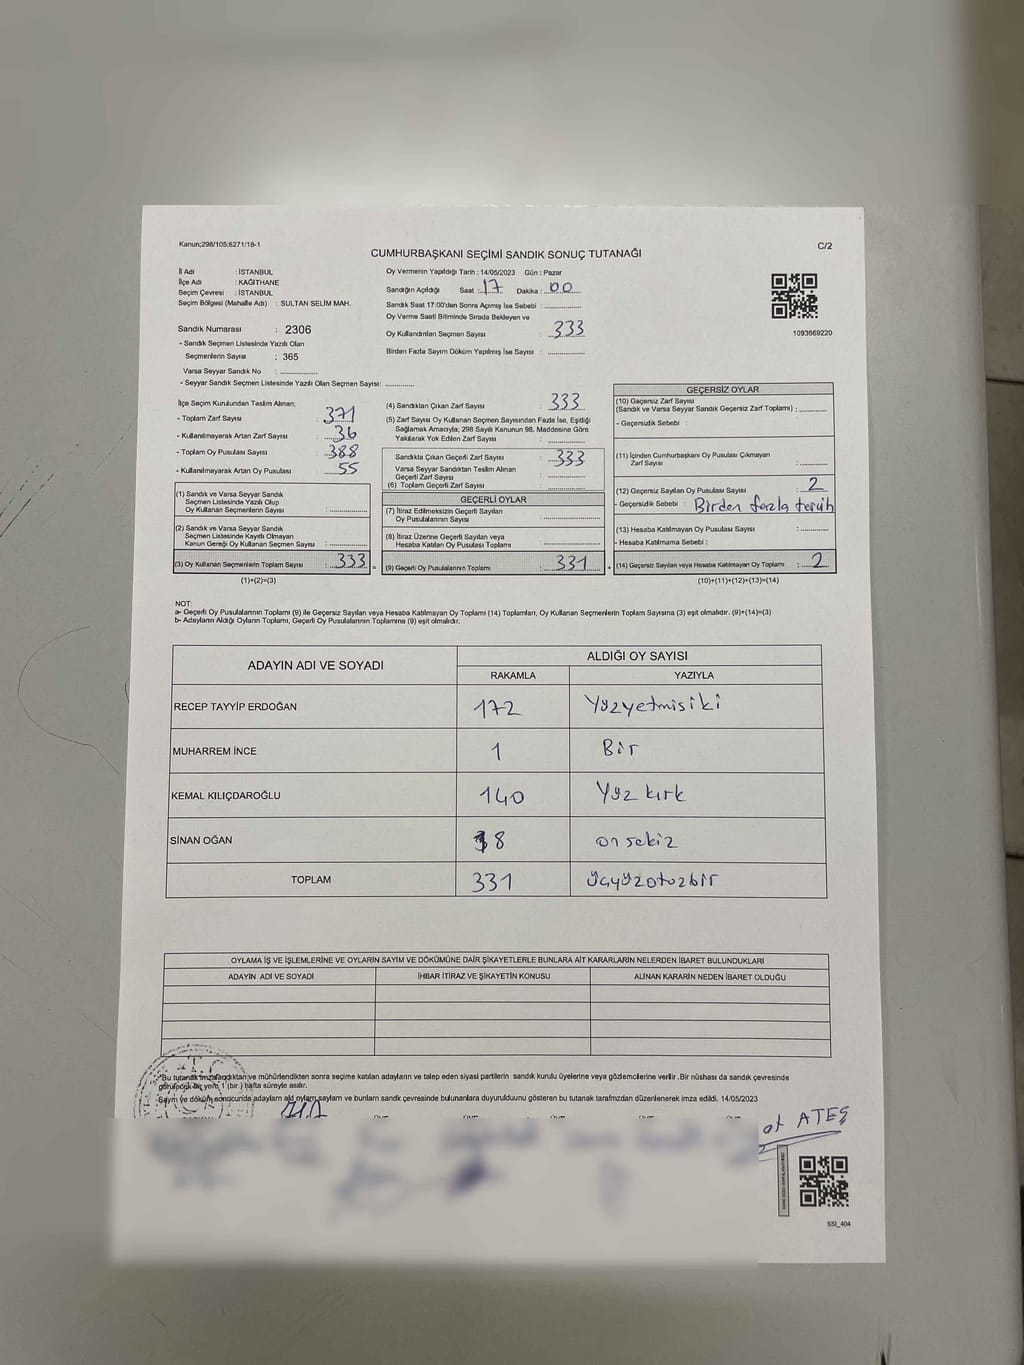 Kanun;298/105;6271/18-1
C/2
CUMHURBAŞKANI SEÇİMİ SANDIK SONUÇ TUTANAĞI
İl Adı : İSTANBUL
İlçe Adı : KAĞITHANE
Seçim Çevresi : İSTANBUL
Seçim Bölgesi (Mahalle Adı) : SULTAN SELİM MAH.
Sandık Numarası : 2306
- Sandık Seçmen Listesinde Yazılı Olan
Seçmenlerin Sayısı : 365
Varsa Seyyar Sandık No :
- Seyyar Sandık Seçmen Listesinde Yazılı Olan Seçmen Sayısı:
Oy Vermenin Yapıldığı Tarih : 14/05/2023 Gün : Pazar
Sandığın Açıldığı Saat : 17 Dakika : 00
Sandık Saat 17:00'den Sonra Açılmış İse Sebebi :
Oy Verme Saati Bitiminde Sırada Bekleyen ve
Oy Kullandırılan Seçmen Sayısı : 333
Birden Fazla Sayım Döküm Yapılmış İse Sayısı :
1093669220
İlçe Seçim Kurulundan Teslim Alınan;
- Toplam Zarf Sayısı : 371
- Kullanılmayarak Artan Zarf Sayısı : 36
- Toplam Oy Pusulası Sayısı : 388
- Kullanılmayarak Artan Oy Pusulası : 55
(1) Sandık ve Varsa Seyyar Sandık
Seçmen Listesinde Yazılı Olup
Oy Kullanan Seçmenlerin Sayısı :
(2) Sandık ve Varsa Seyyar Sandık
Seçmen Listesinde Kayıtlı Olmayan
Kanun Gereği Oy Kullanan Seçmen Sayısı :
(3) Oy Kullanan Seçmenlerin Toplam Sayısı : 333
(1)+(2)=(3)
(4) Sandıktan Çıkan Zarf Sayısı : 333
(5) Zarf Sayısı Oy Kullanan Seçmen Sayısından Fazla İse, Eşitliği
Sağlamak Amacıyla; 298 Sayılı Kanunun 98. Maddesine Göre
Yakılarak Yok Edilen Zarf Sayısı :
Sandıkta Çıkan Geçerli Zarf Sayısı : 333
Varsa Seyyar Sandıktan Teslim Alınan
Geçerli Zarf Sayısı :
(6) Toplam Geçerli Zarf Sayısı :
GEÇERLİ OYLAR
(7) İtiraz Edilmeksizin Geçerli Sayılan
Oy Pusulalarının Sayısı :
(8) İtiraz Üzerine Geçerli Sayılan veya
Hesaba Katılan Oy Pusulası Toplamı :
(9) Geçerli Oy Pusulalarının Toplamı : 331
GEÇERSİZ OYLAR
(10) Geçersiz Zarf Sayısı
(Sandık ve Varsa Seyyar Sandık Geçersiz Zarf Toplamı) :
- Geçersizlik Sebebi :
(11) İçinden Cumhurbaşkanı Oy Pusulası Çıkmayan
Zarf Sayısı :
(12) Geçersiz Sayılan Oy Pusulası Sayısı : 2
- Geçersizlik Sebebi : Birden fazla tercih
(13) Hesaba Katılmayan Oy Pusulası Sayısı :
- Hesaba Katılmama Sebebi :
(14) Geçersiz Sayılan veya Hesaba Katılmayan Oy Toplamı : 2
(10)+(11)+(12)+(13)=(14)
NOT:
a- Geçerli Oy Pusulalarının Toplamı (9) ile Geçersiz Sayılan veya Hesaba Katılmayan Oy Toplamı (14) Toplamları, Oy Kullanan Seçmenlerin Toplam Sayısına (3) eşit olmalıdır. (9)+(14)=(3)
b- Adayların Aldığı Oyların Toplamı, Geçerli Oy Pusulalarının Toplamına (9) eşit olmalıdır.
ADAYIN ADI VE SOYADI ALDIĞI OY SAYISI
RAKAMLA YAZIYLA
RECEP TAYYİP ERDOĞAN 172 Yüzyetmişiki
MUHARREM İNCE 1 Bir
KEMAL KILIÇDAROĞLU 140 Yüz kırk
SİNAN OĞAN 18 on sekiz
TOPLAM 331 üçyüzotuzbir
OYLAMA İŞ VE İŞLEMLERİNE VE OYLARIN SAYIM VE DÖKÜMÜNE DAİR ŞİKAYETLERLE BUNLARA AİT KARARLARIN NELERDEN İBARET BULUNDUKLARI
ADAYIN ADI VE SOYADI İHBAR İTİRAZ VE ŞİKAYETİN KONUSU ALINAN KARARIN NEDEN İBARET OLDUĞU
T.C
Bu tutanak imzalandıktan ve mühürlendikten sonra seçime katılan adayların ve talep eden siyasi partilerin sandık kurulu üyelerine veya gözlemcilerine verilir. Bir nüshası da sandık çevresinde
görünecek bir yere 1 (bir) hafta süreyle asılır.
Sayım ve döküm sonucunda adayların aldığı oyların sayısını ve bunların sandık çevresinde bulunanlara duyurulduğunu gösteren bu tutanak tarafımızdan düzenlenerek imza edildi. 14/05/2023
ATEŞ
SSI_404